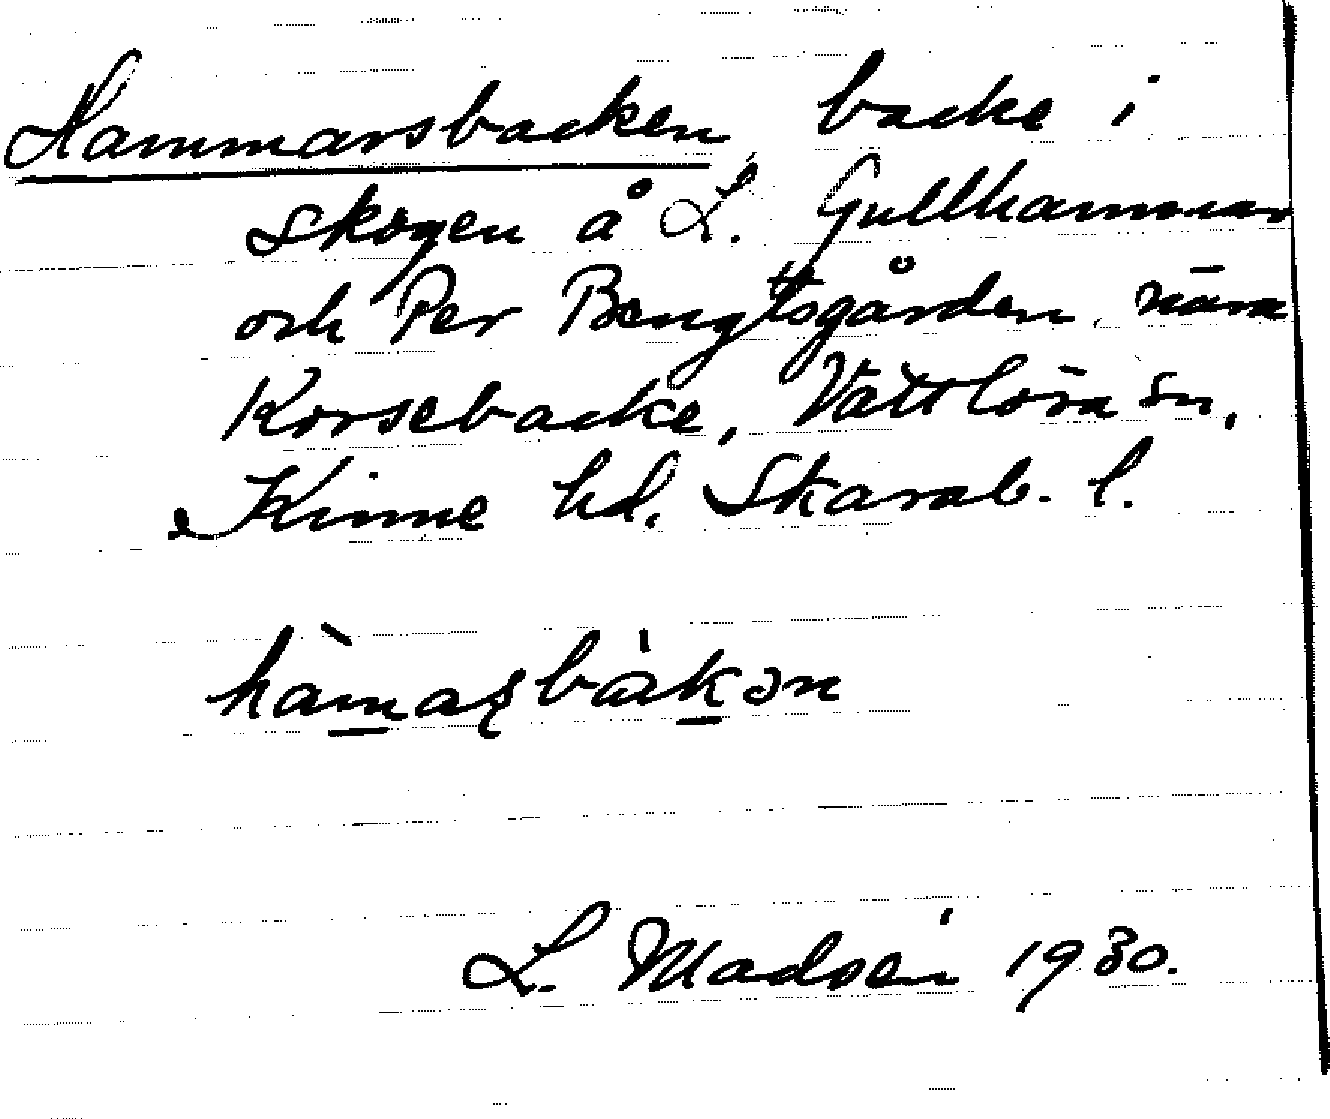 Hammarsbacken, backe i
skogen å L. Gullhammar
och Per Bengtsgården nära
Korsebacke, Vättlösa sn,
Kinne hd. Skarab. l.
L. Madsén 1930.